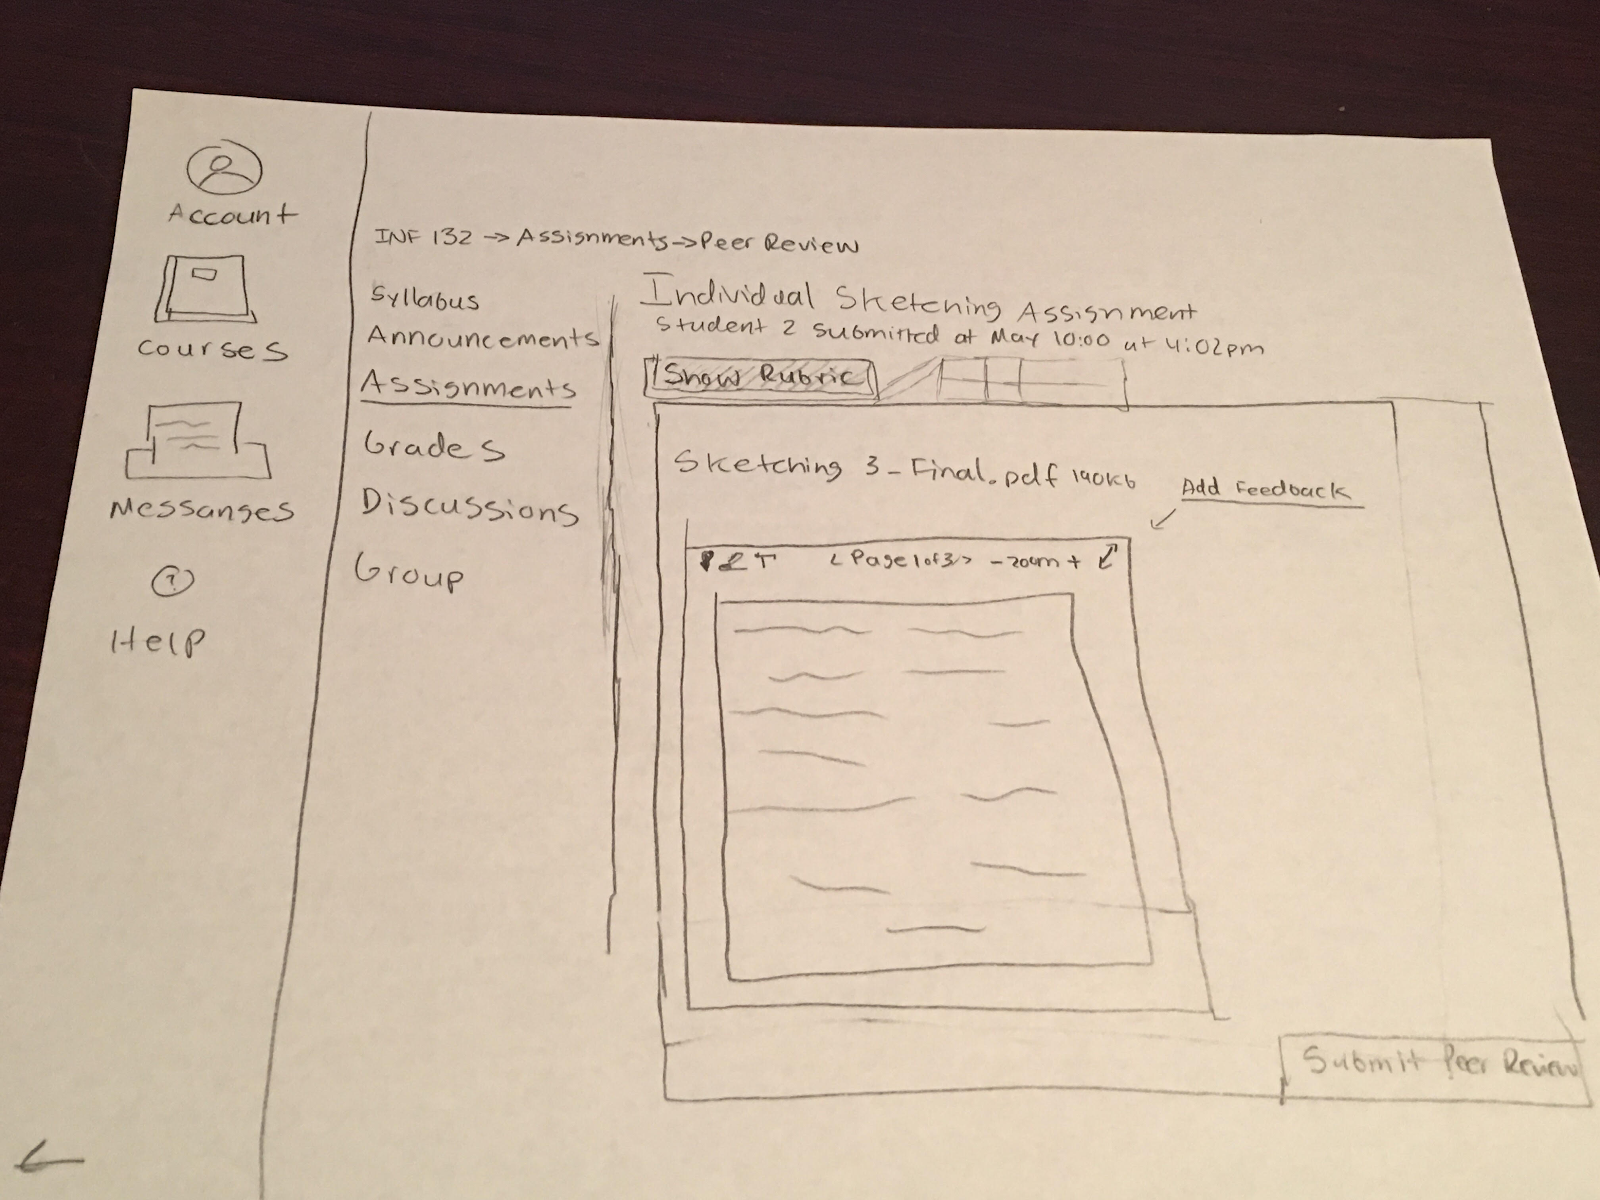 Account
Courses
Messanges
?
Help
INF 132 -> Assignments -> Peer Review
Syllabus
Announcements
Assignments
Grades
Discussions
Group
Individual Sketching Assignment
Student 2 submitted at May 10:00 at 4:02pm
Show Rubric
Sketching 3_Final.pdf 190Kb
Add Feedback
T < Page 1 of 3 > - zoom +
Submit Peer Review